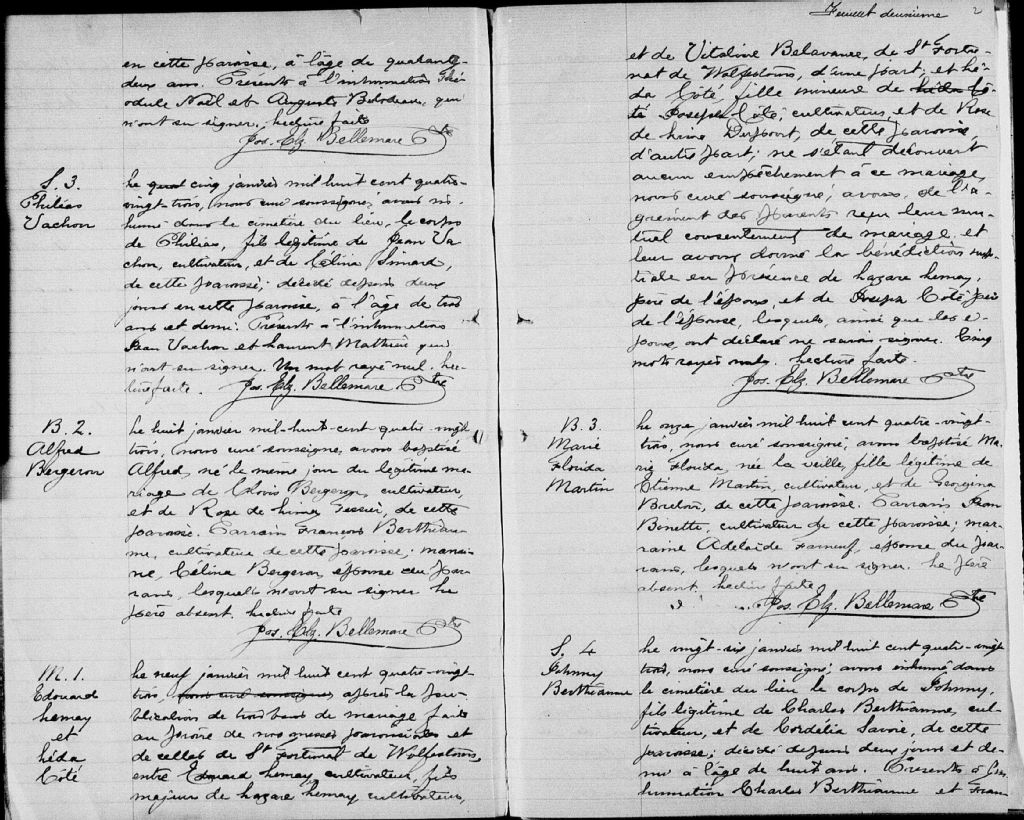 en cette paroisse, à l'âge de quarante-
deux ans. Présents à l'inhumation Thé-
odule Noël et Auguste Bilodeau, qui
n'ont su signer, lecture faite
Jos. Elz. Bellemare Ptre
S. 3.
Philias
Vachon
Le quat cinq janvier mil huit cent quatre-
vingt-trois, nous curé soussigné, avons in-
humé dans le cimetière du lieu, le corps
de Philias, fils légitime de Jean Va-
chon, cultivateur, et de Célina Simard,
de cette paroisse; décédé depuis deux
jours en cette paroisse, à l'âge de trois
ans et demi. Présents à l'inhumation
Jean Vachon et Laurent Mathieu qui
n'ont su signer. Un mot rayé nul. Lec-
ture faite. Jos. Elz. Bellemare Ptre
B. 2.
Alfred
Bergeron
Le huit janvier mil-huit-cent quatre-vingt
trois, nous curé soussigné, avons baptisé
Alfred, né le même jour du légitime ma-
riage de Clovis Bergeron, cultivateur,
et de Rose de Lima Tessier, de cette
paroisse. Parrain François Berthiau-
me, cultivateur de cette paroisse; marrai-
ne, Célina Bergeron, épouse du par-
rain, lesquels n'ont su signer. Le
père absent. Lecture faite
Jos. Elz. Bellemare Ptre
M. 1.
Edouard
Lemay
et
Léda
Côté
Le neuf janvier mil huit cent quatre-vingt
trois, nous curé soussigné après la pu-
blication de trois bans de mariage faite
au prône de nos messes paroissiales et
de celles de St Fortunat de Wolfestown,
entre Edouard Lemay, cultivateur, fils
majeur de Lazare Lemay, cultivateur,
Feuillet deuxième 2
et de Vitaline Belavance, de St Fortu-
nat de Wolfestown, d'une part, et Lé-
da Côté, fille mineure de
Joseph Côté, cultivateur, et de Rose
de Lima, de cette paroisse,
d'autre part; ne s'étant découvert
aucun empêchement à ce mariage,
nous curé soussigné, avons, de l'a-
grément des parents reçu leur mu-
tuel consentement de mariage, et
leur avons donné la bénédiction nup-
tiale en présence de Lazare Lemay,
père de l'époux, et de Joseph Côté, père
de l'épouse, lesquels, ainsi que les é-
poux, ont déclaré ne savoir signer. Cinq
mots rayés nuls. Lecture faite.
Jos. Elz. Bellemare Ptre
B. 3.
Marie
Florida
Martin
Le onze janvier mil huit cent quatre-vingt-
trois, nous curé soussigné, avons baptisé Ma-
rie Florida, née la veille, fille légitime de
Etienne Martin, cultivateur, et de Georgina
Breton, de cette paroisse. Parrain Jean
Binette, cultivateur de cette paroisse; mar-
raine Adelaïde, épouse du par-
rain, lesquels n'ont su signer. Le père
absent. Lecture faite
Jos. Elz. Bellemare Ptre
S. 4
Johnny
Berthiaume
Le vingt-six janvier mil huit cent quatre-vingt-
trois, nous curé soussigné, avons inhumé dans
le cimetière du lieu le corps de Johnny,
fils légitime de Charles Berthiaume, cul-
tivateur, et de Cordélia Savoie, de cette
paroisse; décédé depuis deux jours et de-
mi à l'âge de huit ans. Présents à l'in-
humation Charles Berthiaume et Fran